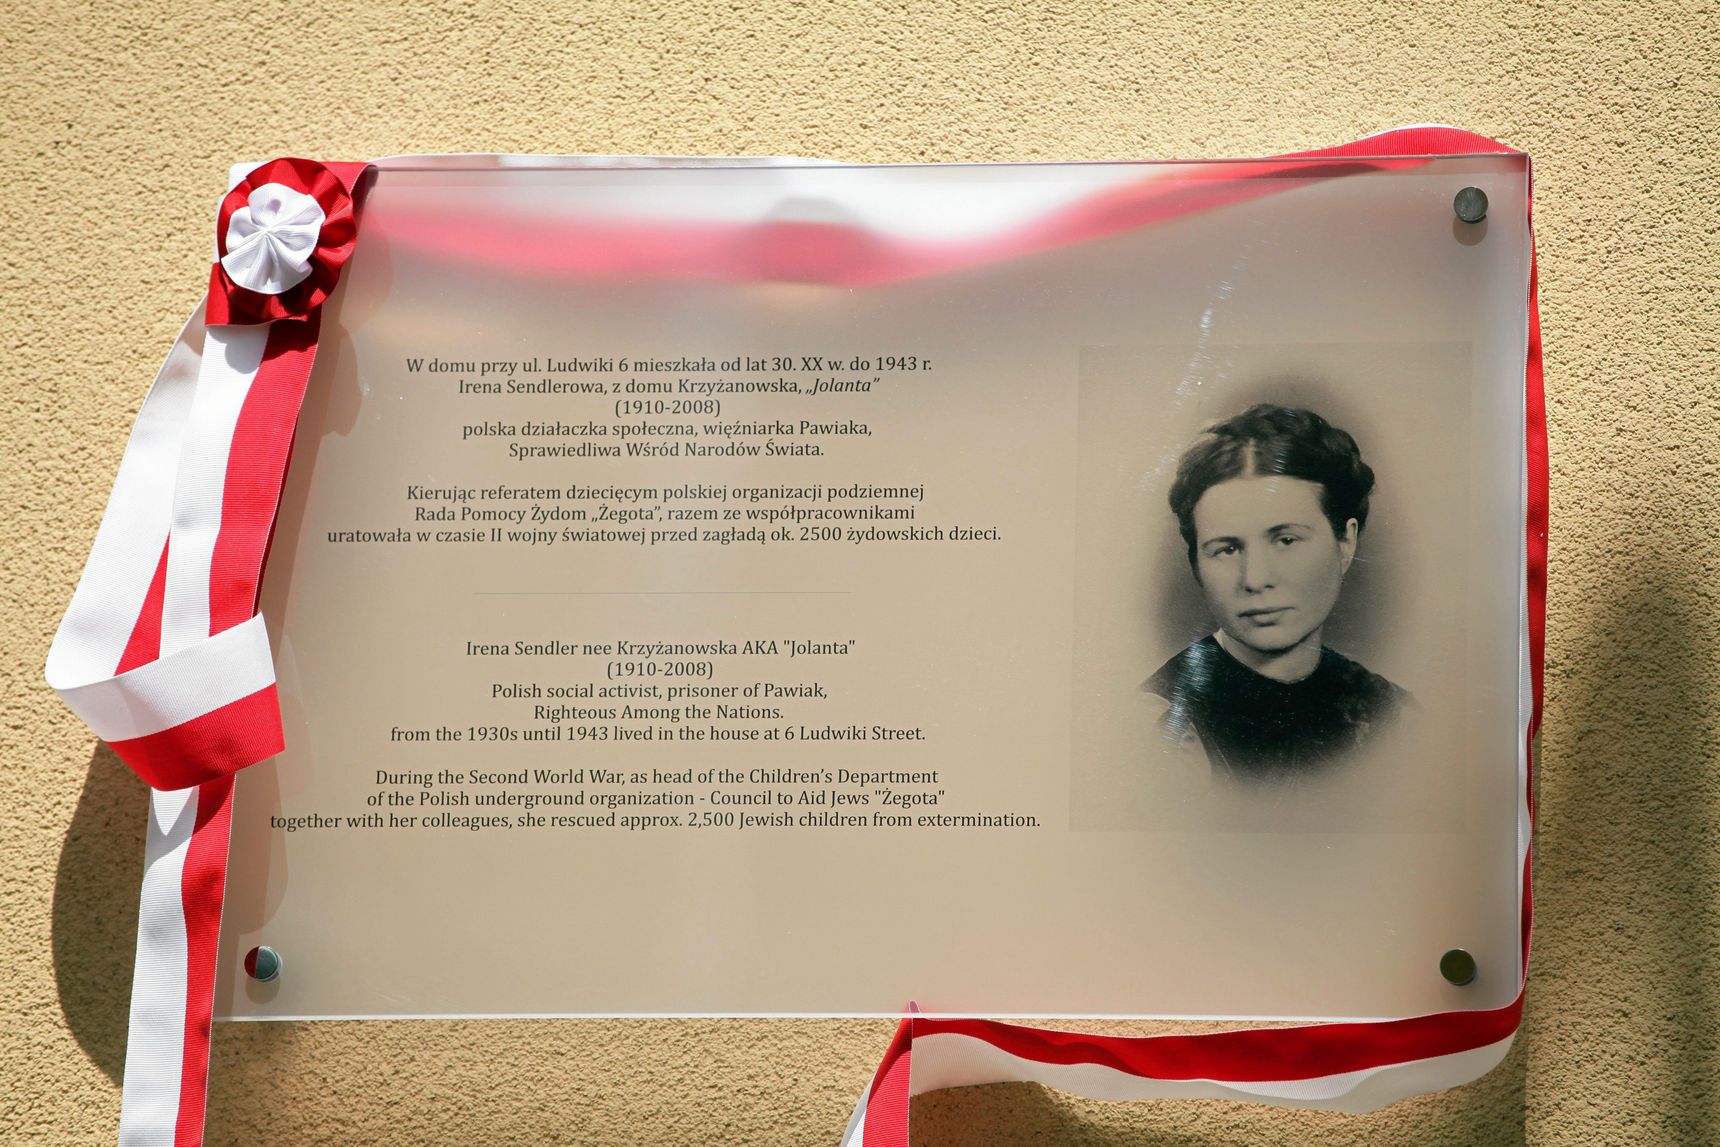 W domu przy ul. Ludwiki 6 mieszkała od lat 30. XX w. do 1943 r.
Irena Sendlerowa, z domu Krzyżanowska, „Jolanta”
(1910-2008)
polska działaczka społeczna, więźniarka Pawiaka,
Sprawiedliwa Wśród Narodów Świata.
Kierując referatem dziecięcym polskiej organizacji podziemnej
Rada Pomocy Żydom „Żegota”, razem ze współpracownikami
uratowała w czasie II wojny światowej przed zagładą ok. 2500 żydowskich dzieci.
Irena Sendler nee Krzyżanowska AKA "Jolanta"
(1910-2008)
Polish social activist, prisoner of Pawiak,
Righteous Among the Nations.
from the 1930s until 1943 lived in the house at 6 Ludwiki Street.
During the Second World War, as head of the Children’s Department
of the Polish underground organization - Council to Aid Jews "Żegota"
together with her colleagues, she rescued approx. 2,500 Jewish children from extermination.